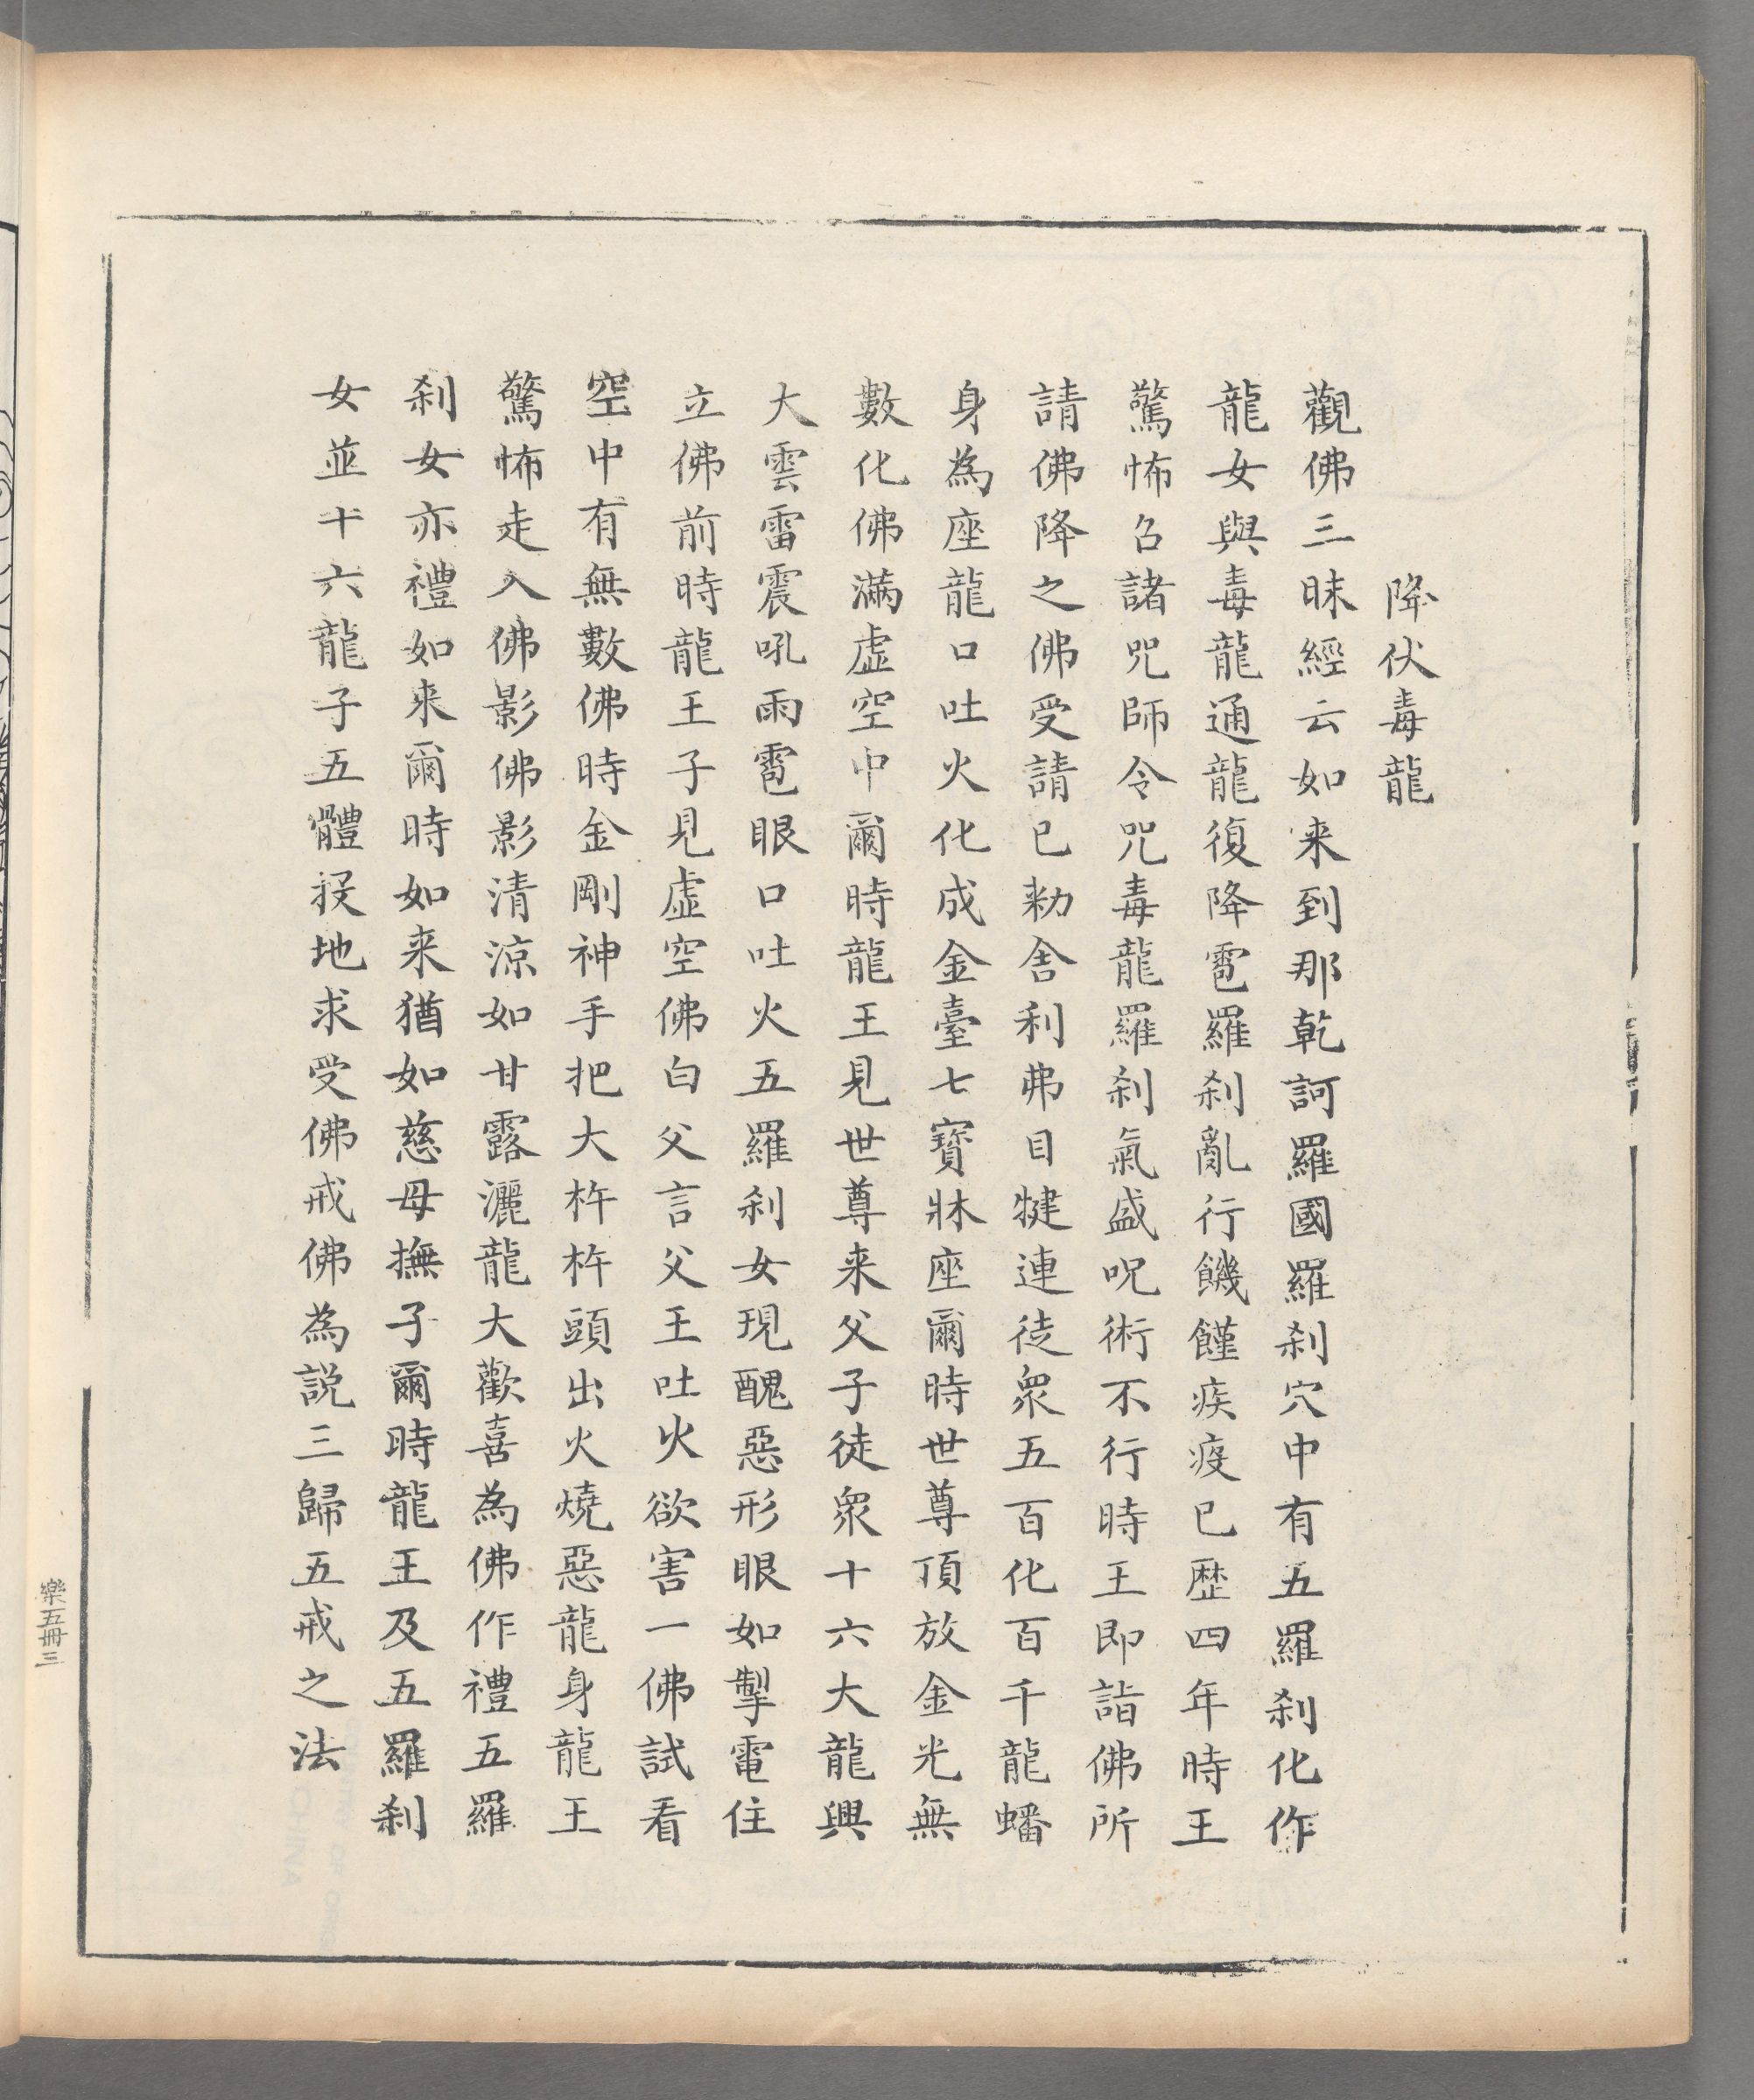 降伏毒龍
觀佛三昧經云如来到那乾訶羅國羅刹穴中有五羅刹化作
龍女與毒龍通龍復降雹羅刹亂行饑饉疾疫已歷四年時王
驚怖召諸咒師令咒毒龍羅刹氣盛呪術不行時王即詣佛所
請佛降之佛受請已勑舍利弗目犍連徒衆五百化百千龍蟠
身為座龍口吐火化成金臺七寶牀座爾時世尊頂放金光無
數化佛滿虛空中爾時龍王見世尊来父子徒衆十六大龍興
大雲雷震吼雨雹眼口吐火五羅刹女現醜惡形眼如掣電住
立佛前時龍王子見虛空佛白父言父王吐火欲害一佛試看
空中有無數佛時金剛神手把大杵杵頭出火燒惡龍身龍王
驚怖走入佛影佛影清涼如甘露灑龍大歡喜為佛作禮五羅
刹女亦禮如来爾時如来猶如慈母撫子爾時龍王及五羅刹
女並十六龍子五體投地求受佛戒佛為説三歸五戒之法
樂五冊三